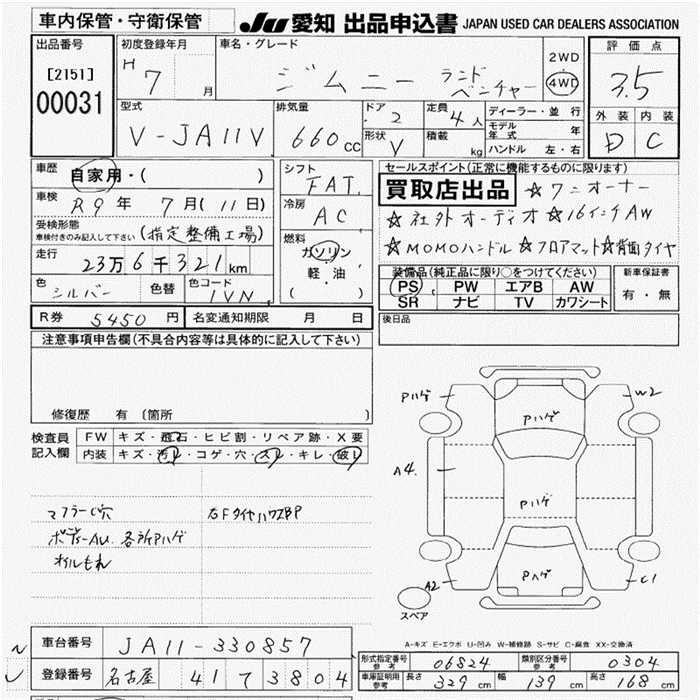 車内保管・守衛保管
JU 愛知 出品申込書 JAPAN USED CAR DEALERS ASSOCIATION
出品番号
[2151]
00031
初度登録年月
H 7 月
車名・グレード
ジムニー ランドベンチャー
2WD
4WD
評価点
3.5
外装 内装
D C
型式
V-JA11V
排気量
660 cc
ドア
2
定員
4人
形状
V
積載
kg
ディーラー・並行
モデル年式 年
ハンドル 左・右
車歴
自家用・( )
車検
R9年 7月(11日)
受検形態
車検付きのみ記入して下さい (指定整備工場)
走行
23万6千321km
色
シルバー
色替
色コード
1VN
シフト
FAT
冷房
AC
燃料
ガソリン
軽・油
( )
セールスポイント(正常に機能するものに限ります)
買取店出品 ☆ワンオーナー
☆社外オーディオ☆16インチAW
☆MOMOハンドル☆フロアマット☆背面タイヤ
装備品(純正品に限り○をつけてください)
PS PW エアB AW
SR ナビ TV カワシート
新車保証書
有・無
R券 5450 円
名変通知期限 月 日
後日品
注意事項申告欄(不具合内容等は具体的に記入して下さい)
修復歴 有 〔箇所 〕
検査員記入欄
FW キズ・飛石・ヒビ割・リペア跡・X要
内装 キズ・汚れ・コゲ・穴・スレ・キレ・破れ
マフラー穴
右FタイヤハウスBP
ボディーAU. 各所Pハゲ
オイルもれ
Pハゲ
W2
Pハゲ
A4.
Pハゲ
Pハゲ
A2
C1
スペア
A-キズ E-エクボ U-凹み W-補修跡 S-サビ C-腐食 XX-交換済
車台番号 JA11-330857
登録番号 名古屋 41 て 3804
形式指定番号参考 06824
類別区分番号参考 0304
車庫証明用参考 長さ 329 cm 幅 139 cm 高さ 168 cm